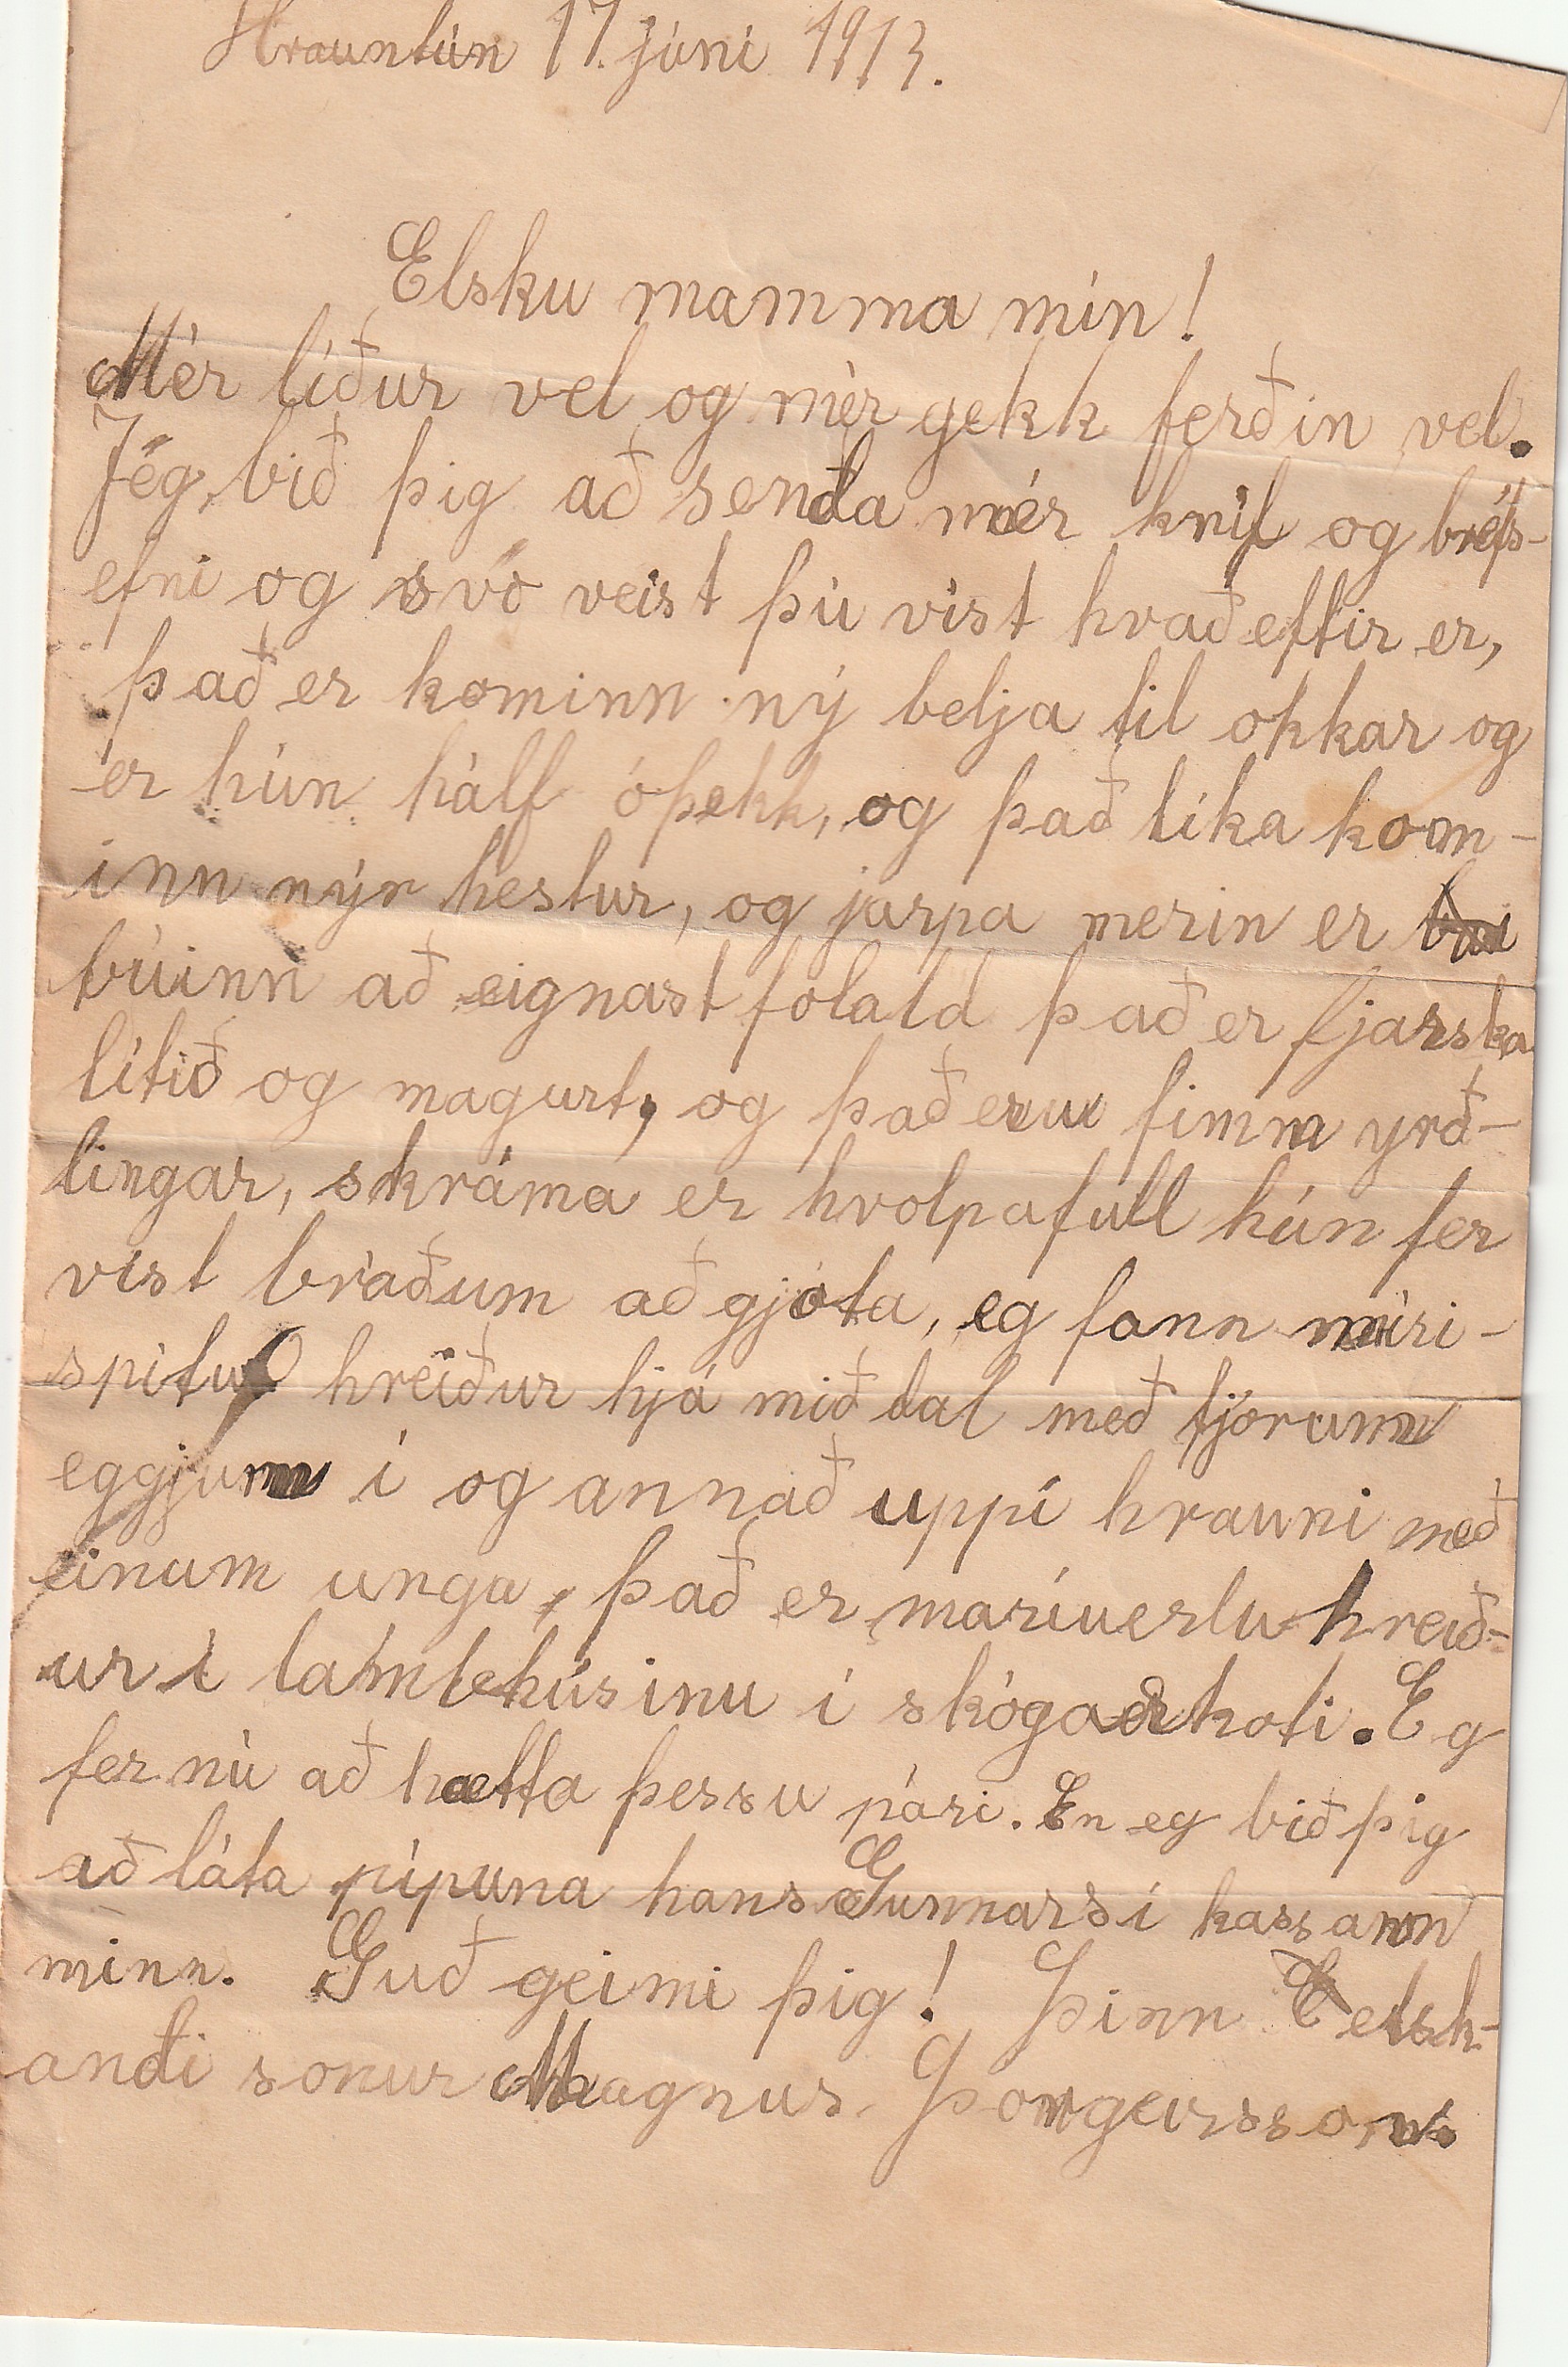 Hrauntún 17. júní 1913.
Elsku mamma mín!
Mér líður vel og mér gekk ferðin vel.
Jég bið þig að senda mér hníf og bréfs-
efni og svo veist þú víst hvað eftir er,
það er kominn ný belja til okkar og
er hún hálf óþekk, og það líka kom-
inn nýr hestur, og jarpa merin er
búinn að eignast folald það er fjarska
lítið og magurt, og það eru fimm yrð-
lingar, skráma er hvolpafull hún fer
víst bráðum að gjóta, eg fann míri-
spítu hreiður hjá mið dal með fjórum
eggjum í og annað uppí hrauni með
einum unga, það er maríuerlu hreið-
ur í lambhúsinu í skógarkoti. Eg
fer nú að hætta þessu pári. En eg bið þig
að láta pípuna hans Gunnars í kassann
minn. Guð geimi þig! Þinn elsk-
andi sonur Magnus. Þorgeirsson.